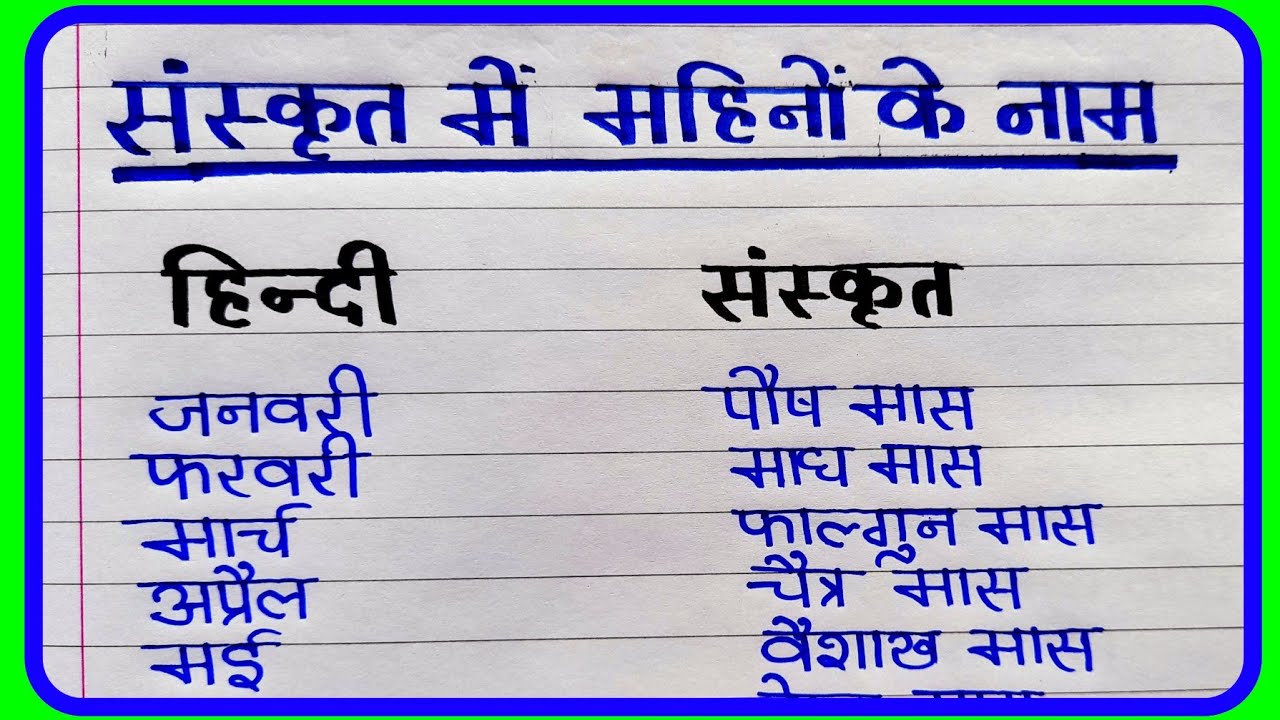 संस्कृत में महिनों के नाम
हिन्दी संस्कृत
जनवरी पौष मास
फरवरी माघ मास
मार्च फाल्गुन मास
अप्रैल चैत्र मास
मई वैशाख मास